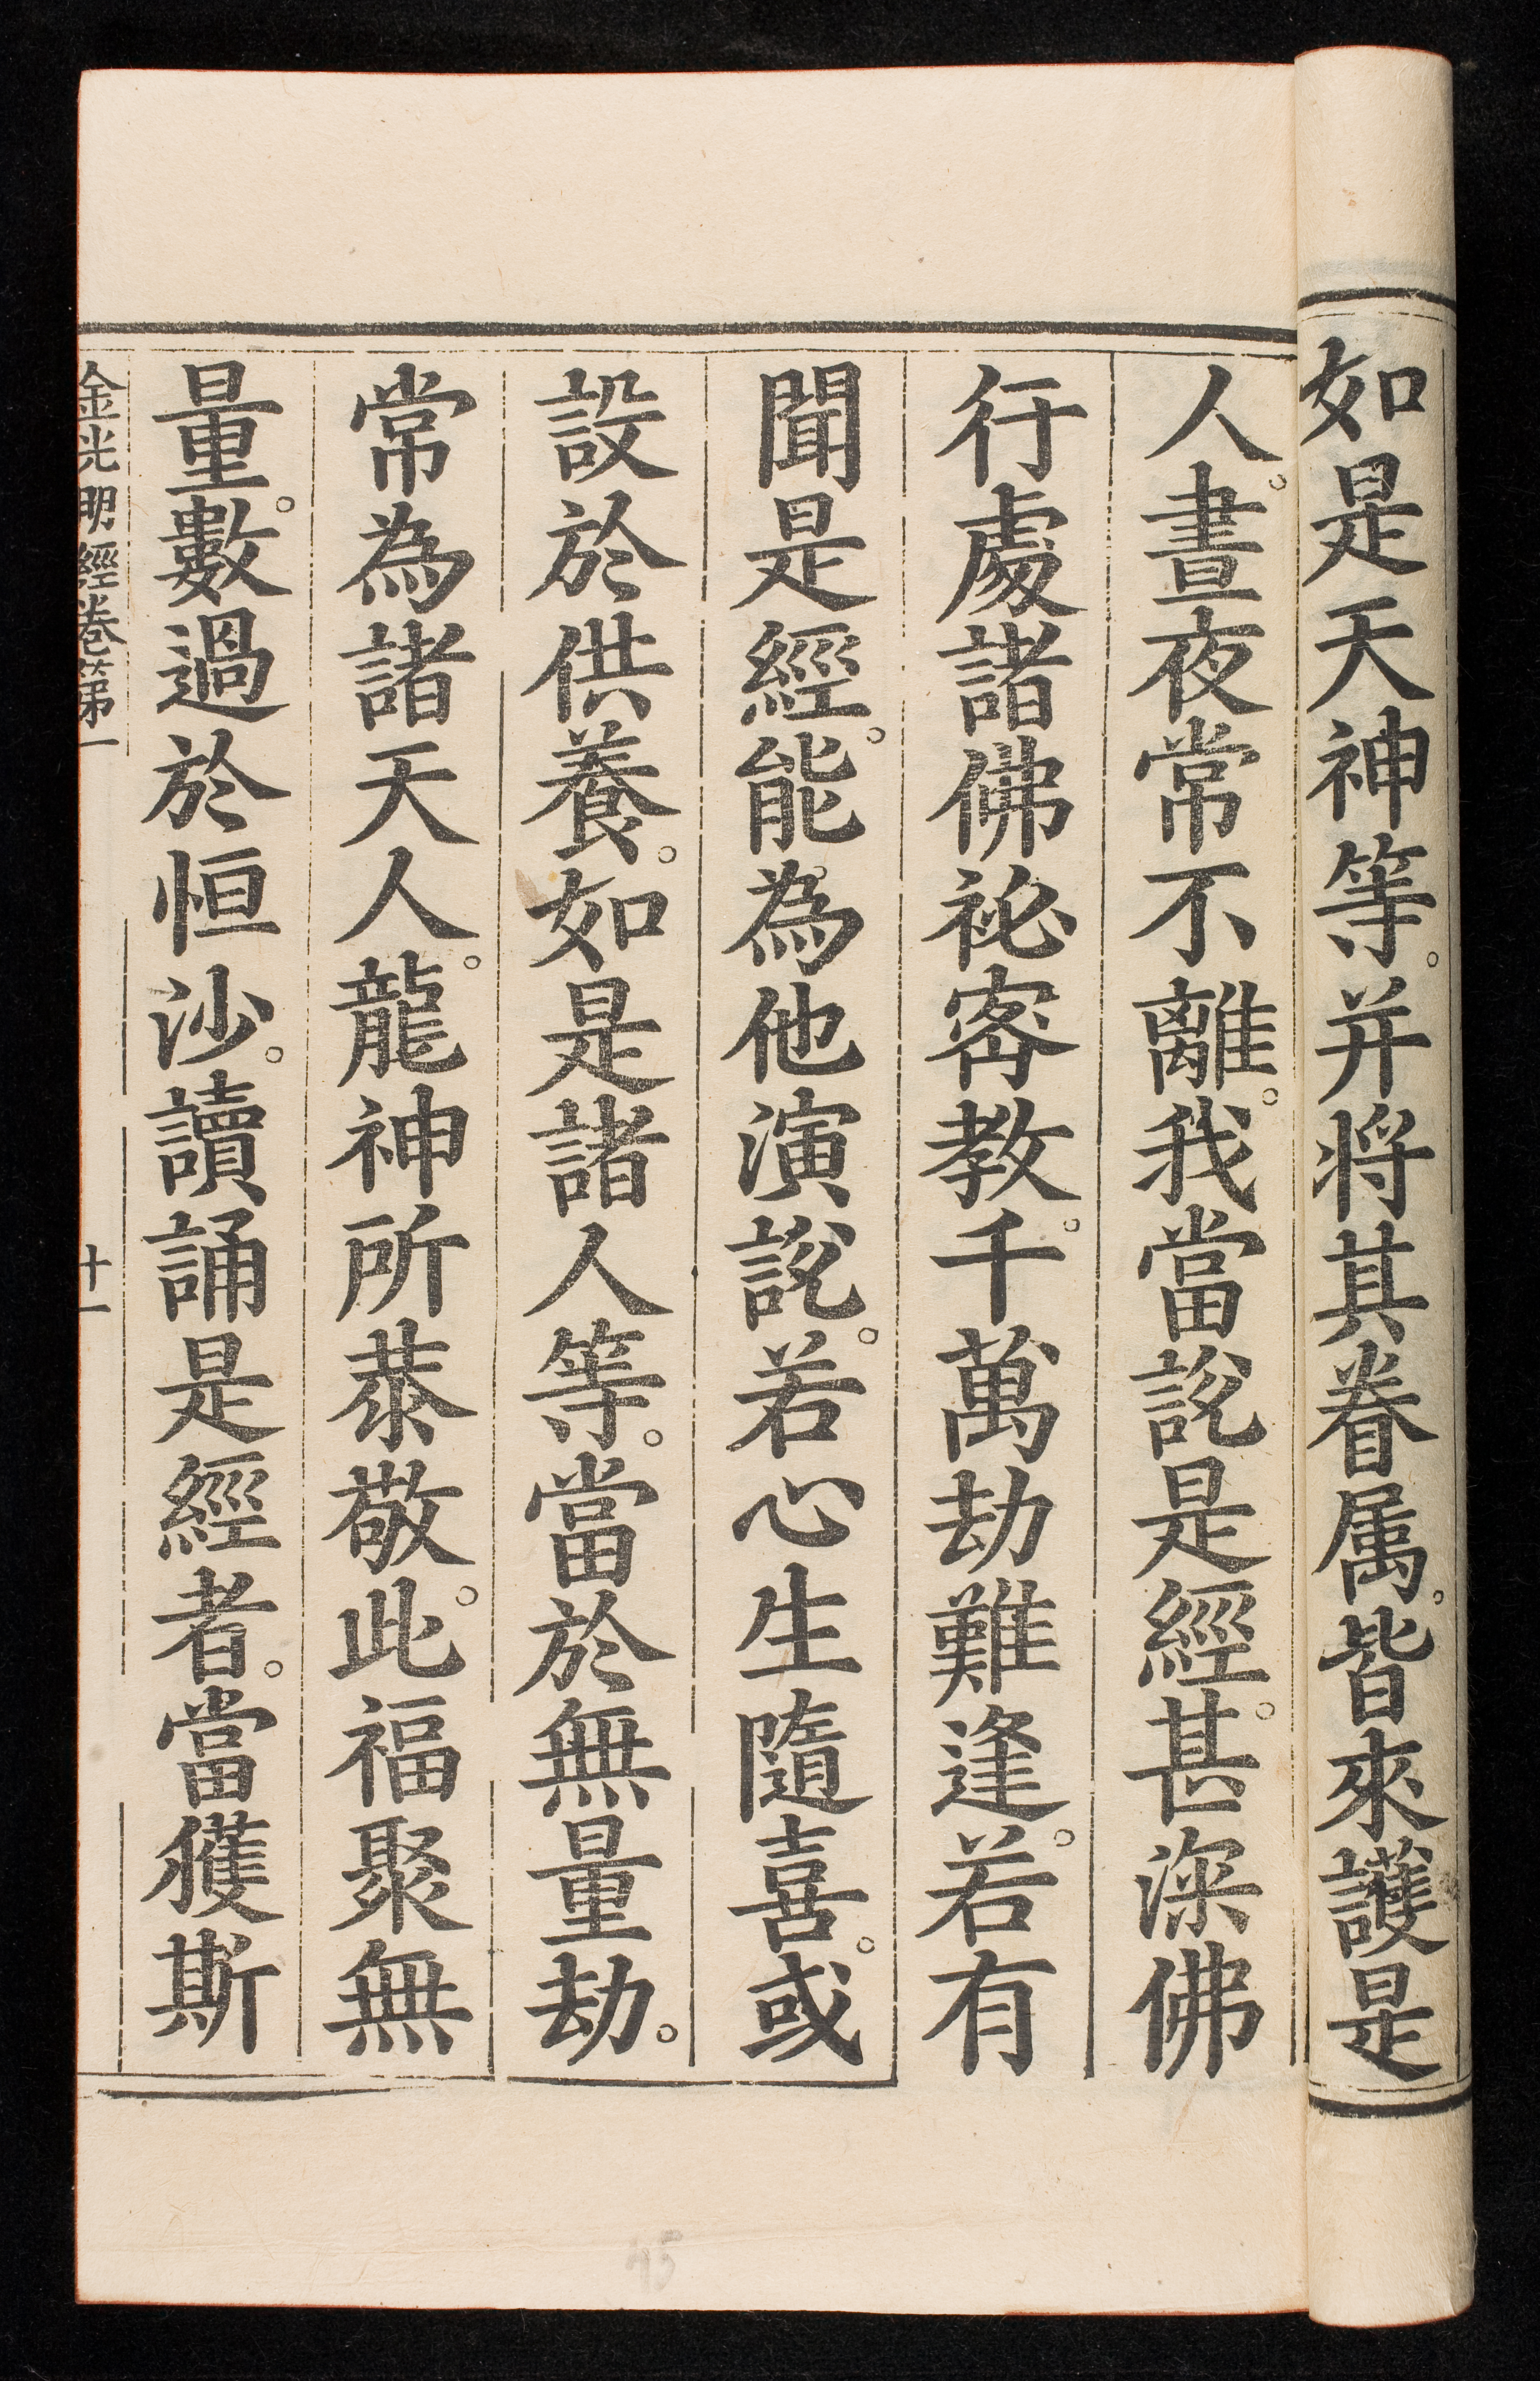 如是天神等。并将其眷属。皆來護是
人。晝夜常不離。我當說是經。甚深佛
行處諸佛祕宻教。千萬劫難逢。若有
聞是經。能為他演說。若心生隨喜。或
設於供養。如是諸人等。當於無量劫。
常為諸天人。龍神所恭敬。此福聚無
量。數過於恒沙。讀誦是經者。當獲斯
金光明經卷第一 十一